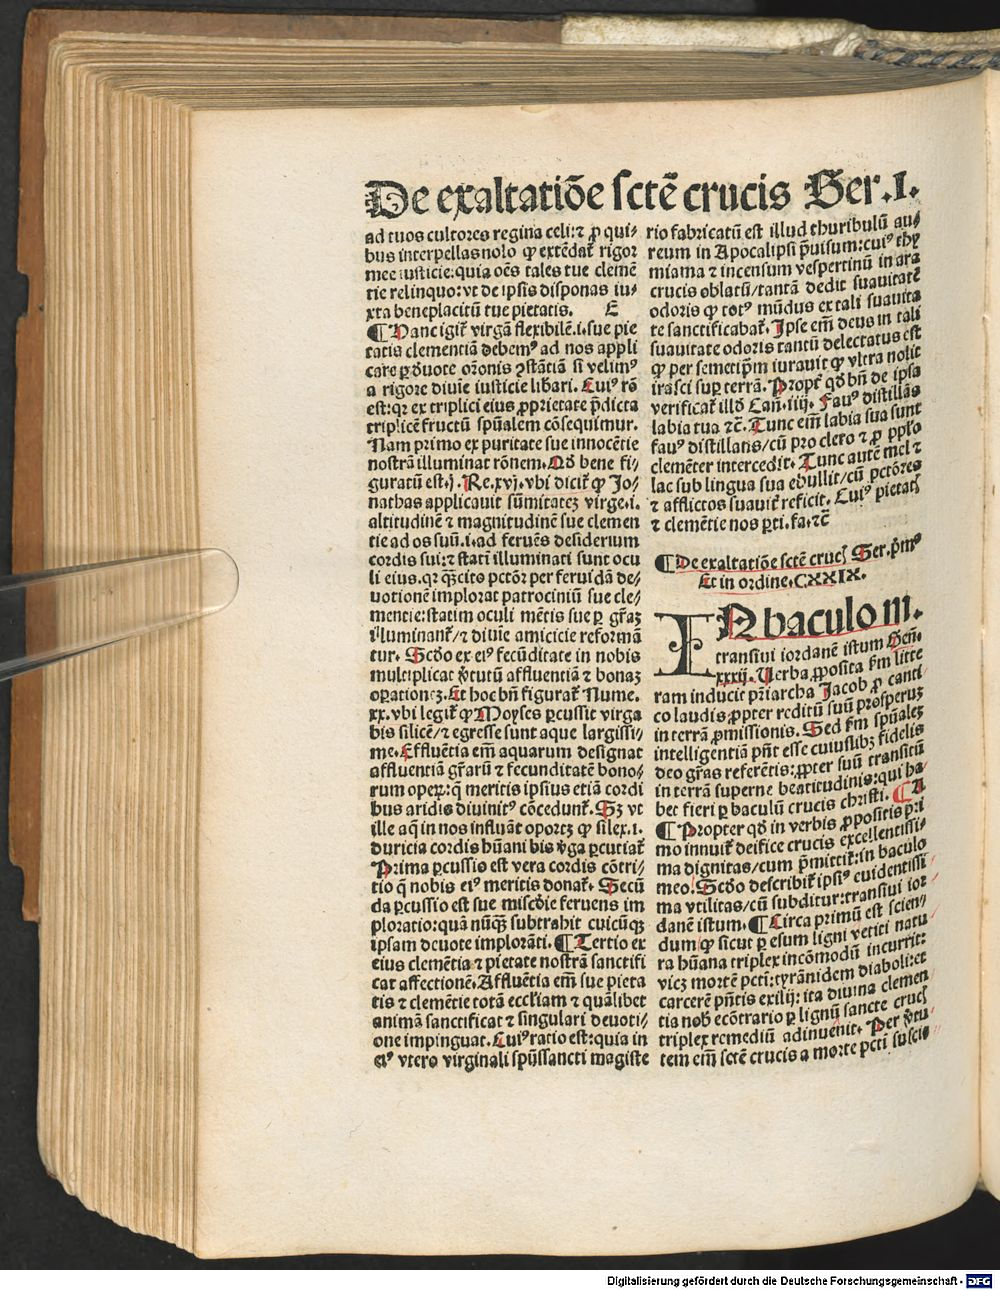 De exaltatiōe sctē crucis Ser.I.
ad tuos cultores regina celi:⁊ ꝓ qui⸗
bus interpellas nolo ꝙ extēdat̄ rigor
mee iusticie:quia oēs tales tue clemē
tie relinquo:vt de ipsis disponas iu⸗
xta beneplacitū tue pietatis. E
¶ Hanc igit̄ virgā flexibilē.i.sue pie
tatis clementiā debemꝰ ad nos appli
care ꝑ deuote or̄onis ꝯstātiā si velimꝰ
a rigore diuīe iusticie libari. Cuiꝰ rō
est:qr ex triplici eius ꝓprietate p̄dicta
triplicē fructū spūalem cōsequimur.
Nam primo ex puritate sue innocētie
nostrā illuminat rōnem. Qd̄ bene fi⸗
guratū est.j. Re.xvj.vbi dicit̄ ꝙ Jo⸗
nathas applicauit sūmitatez virge.i.
altitudinē ⁊ magnitudinē sue clemen
tie ad os suū.i.ad feruēs desiderium
cordis sui:⁊ statī illuminati sunt ocu
li eius.qr qz̄cito pctōr per feruidā de⸗
uotionē implorat patrociniū sue cle⸗
mentie:statim oculi mētis sue ꝑ gr̄az
illuminant̄/⁊ diuīe amicicie reformā
tur. Scdo ex eiꝰ fecūditate in nobis
multiplicat v̄tutū affluentiā ⁊ bonaz
oꝑationez. Et hoc bn̄ figurat̄ Nume.
xx.vbi legit̄ ꝙ Moyses ꝑcussit virga
bis silicē/⁊ egresse sunt aque largissi⸗
me. Effluētia em̄ aquarum designat
affluentiā gr̄arū ⁊ fecunditatē bono⸗
rum operꝫ:q̄ meritis ipsius etiā cordi
bus aridis diuinitꝰ cōcedunt̄. Sz vt
ille aq̄ in nos influāt oportz ꝙ silex.i.
duricia cordis hūani bis v̄ga ꝑcutiat̄
Prima ꝑcussio est vera cordis cōtri⸗
tio q̄ nobis eiꝰ meritis donat̄. Secū
da ꝑcussio est sue miscd̄ie feruens im
ploratio:quā nūqz̄ subtrahit cuicūqz
ipsam deuote implorāti. ¶ Tertio ex
eius clemētia ⁊ pietate nostrā sanctifi
cat affectionē. Affluētia em̄ sue pieta
tis ⁊ clemētie totā eccl̄iam ⁊ quālibet
animā sanctificat ⁊ singulari deuoti⸗
one impinguat. Cuiꝰ ratio est:quia in
eiꝰ vtero virginali spūssancti magiste
rio fabricatū est illud thuribulū au⸗
reum in Apocalipsi p̄uisum:cuiꝰ thy
miama ⁊ incensum vespertinū in ara
crucis oblatū/tantā dedit suauitatē
odoris ꝙ totꝰ mūdus ex tali suauita
te sanctificabat̄. Ipse em̄ deus in tali
suauitate odoris tantū delectatus est
ꝙ per semetip̄m iurauit ꝙ vltra nolit
irasci suꝑ terrā. Propt̄ qd̄ bn̄ de ipsa
verificat̄ illd̄ Cań.iiij. Fauꝰ distillās
labia tua ⁊c̄. Tunc em̄ labia sua sunt
fauꝰ distillatis/cū pro clero ⁊ ꝓ pplo
clemēter intercedit. Tunc autē mel ⁊
lac sub lingua sua ebullit/cū pctōres
⁊ afflictos suauit̄ reficit. Cuiꝰ pietatꝭ
⁊ clemētie nos ꝑti. fa.⁊c̄
¶ De exaltatiōe sctē crucꝭ Ser.p̄mꝰ
Et in ordine.CXXIX.
IN baculo m.
transiui iordanē istum Geń.
xxxij. Verba ꝓposita f̄m litte
ram inducit pr̄iarcha Jacob ꝓ canti
co laudis ꝓpter reditū suū prosperuz
in terrā ꝓmissionis. Sed f̄m spūalez
intelligentiā pn̄t esse cuiuslibꝫ fidelis
deo gr̄as referētis:ꝓpter suū transitū
in terrā superne beatitudinis:qui ha⸗
bet fieri ꝑ baculū crucis christi. ¶ A
¶ Propter qd̄ in verbis ꝓpositis p̄ri
mo innuit̄ deifice crucis excellentissi⸗
ma dignitas/cum p̄mittit̄:in baculo
meo. Scd̄o describit̄ ipsiꝰ euidentissi
ma vtilitas/cū subditur:transiui ior
danē istum. ¶ Circa primū est scien⸗
dum ꝙ sicut ꝑ esum ligni vetiti natu
ra hūana triplex incōmodū incurrit:
vicz mortē pctī:tyrānidem diaboli:et
carcerē pn̄tis exilij: ita diuina clemen
tia nob̄ ecōtrario ꝑ lignū sancte crucꝭ
triplex remediū adinuenit. Per v̄tu
tem em̄ sctē crucis a morte pctī suscī⸗
Digitalisierung gefördert durch die Deutsche Forschungsgemeinschaft - DFG